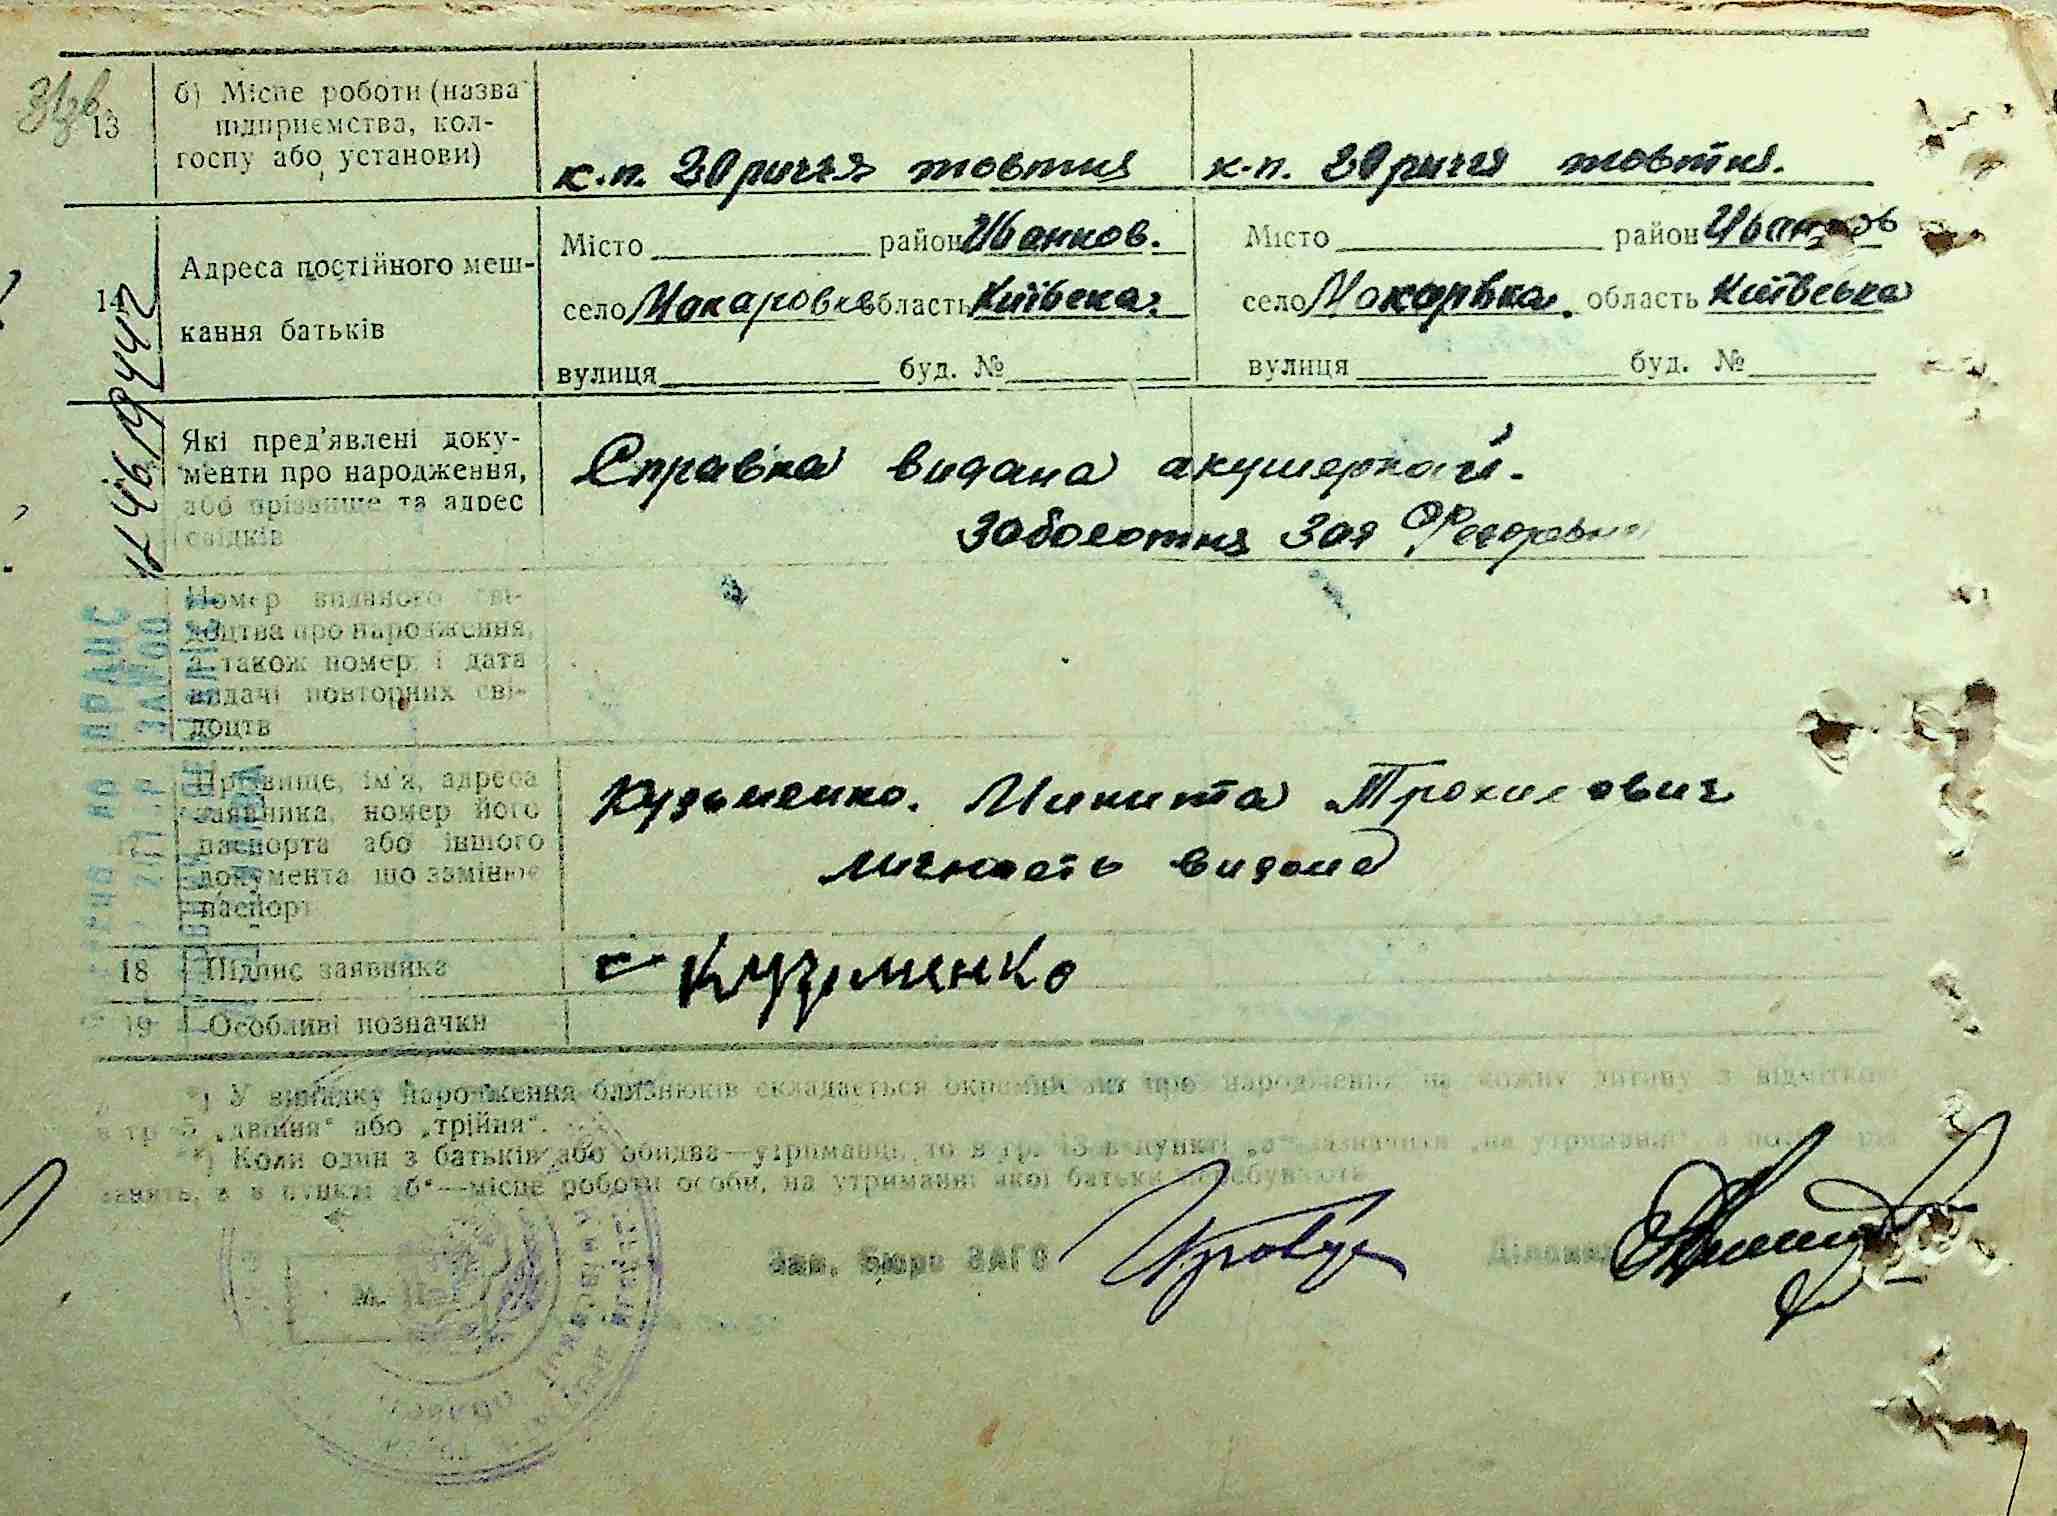 13
б) Місце роботи (назва
підприємства, кол-
госпу або установи)
к.п. 20 риччя жовтня
к.п. 20 риччя жовтня.
14
Адреса постійного меш-
кання батьків
Місто район Иванков.
село Макаровка область Київська.
вулиця буд. №
Місто район Иванков
село Макарівка. область Київська
вулиця буд. №
Які пред'явлені доку-
менти про народження,
або прізвище та адрес
свідків
Справка видана акушеркой.
Заболотня Зоя Федоровна
Номер виданого сві-
доцтва про народження,
а також номер і дата
видачі повторних сві-
доцтв
17
Прізвище, ім'я, адреса
заявника, номер його
паспорта або іншого
документа що замінює
паспорт
Кузьменко. Микита Трохимович
личность видома
18
Підпис заявника
Кузьменко
19
Особливі позначки
*) У випадку народження близнюків складається окремий акт про народження на кожну дитину з відміткою
в гр. 5 „двійня" або „трійня".
**) Коли один з батьків або обидва—утриманці, то в гр. 13 в пункті „а" зазначити „на утриманні",
в пункті „б"—місце роботи особи, на утриманні якої батьки перебувають
М. П.
Зав. Бюро ЗАГС